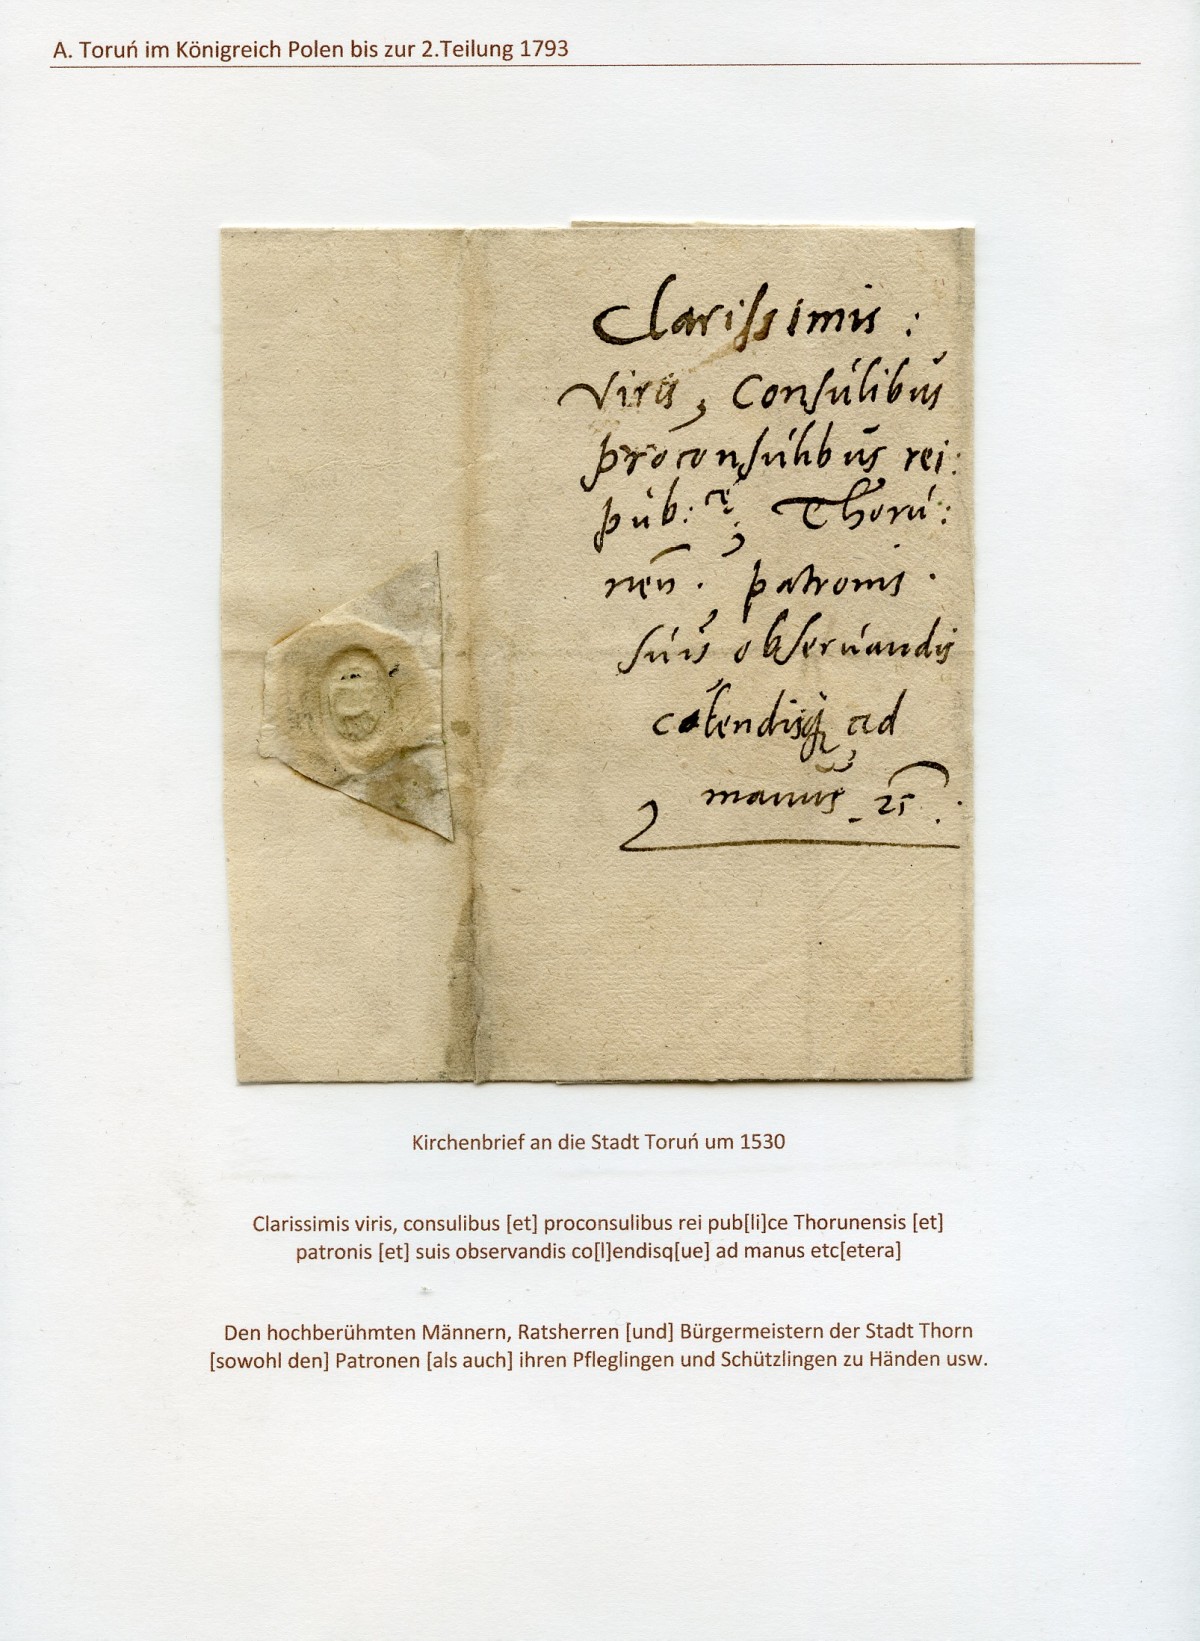 A. Toruń im Königreich Polen bis zur 2.Teilung 1793
Clarissimis :
viris, Consulibus
proconsulibus rei:
pub: cę Thoru:
nen̄ . patronis .
suis obseruandis
colendisq; ad
manus
Kirchenbrief an die Stadt Toruń um 1530
Clarissimis viris, consulibus [et] proconsulibus rei pub[li]ce Thorunensis [et]
patronis [et] suis observandis co[l]endisq[ue] ad manus etc[etera]
Den hochberühmten Männern, Ratsherren [und] Bürgermeistern der Stadt Thorn
[sowohl den] Patronen [als auch] ihren Pfleglingen und Schützlingen zu Händen usw.